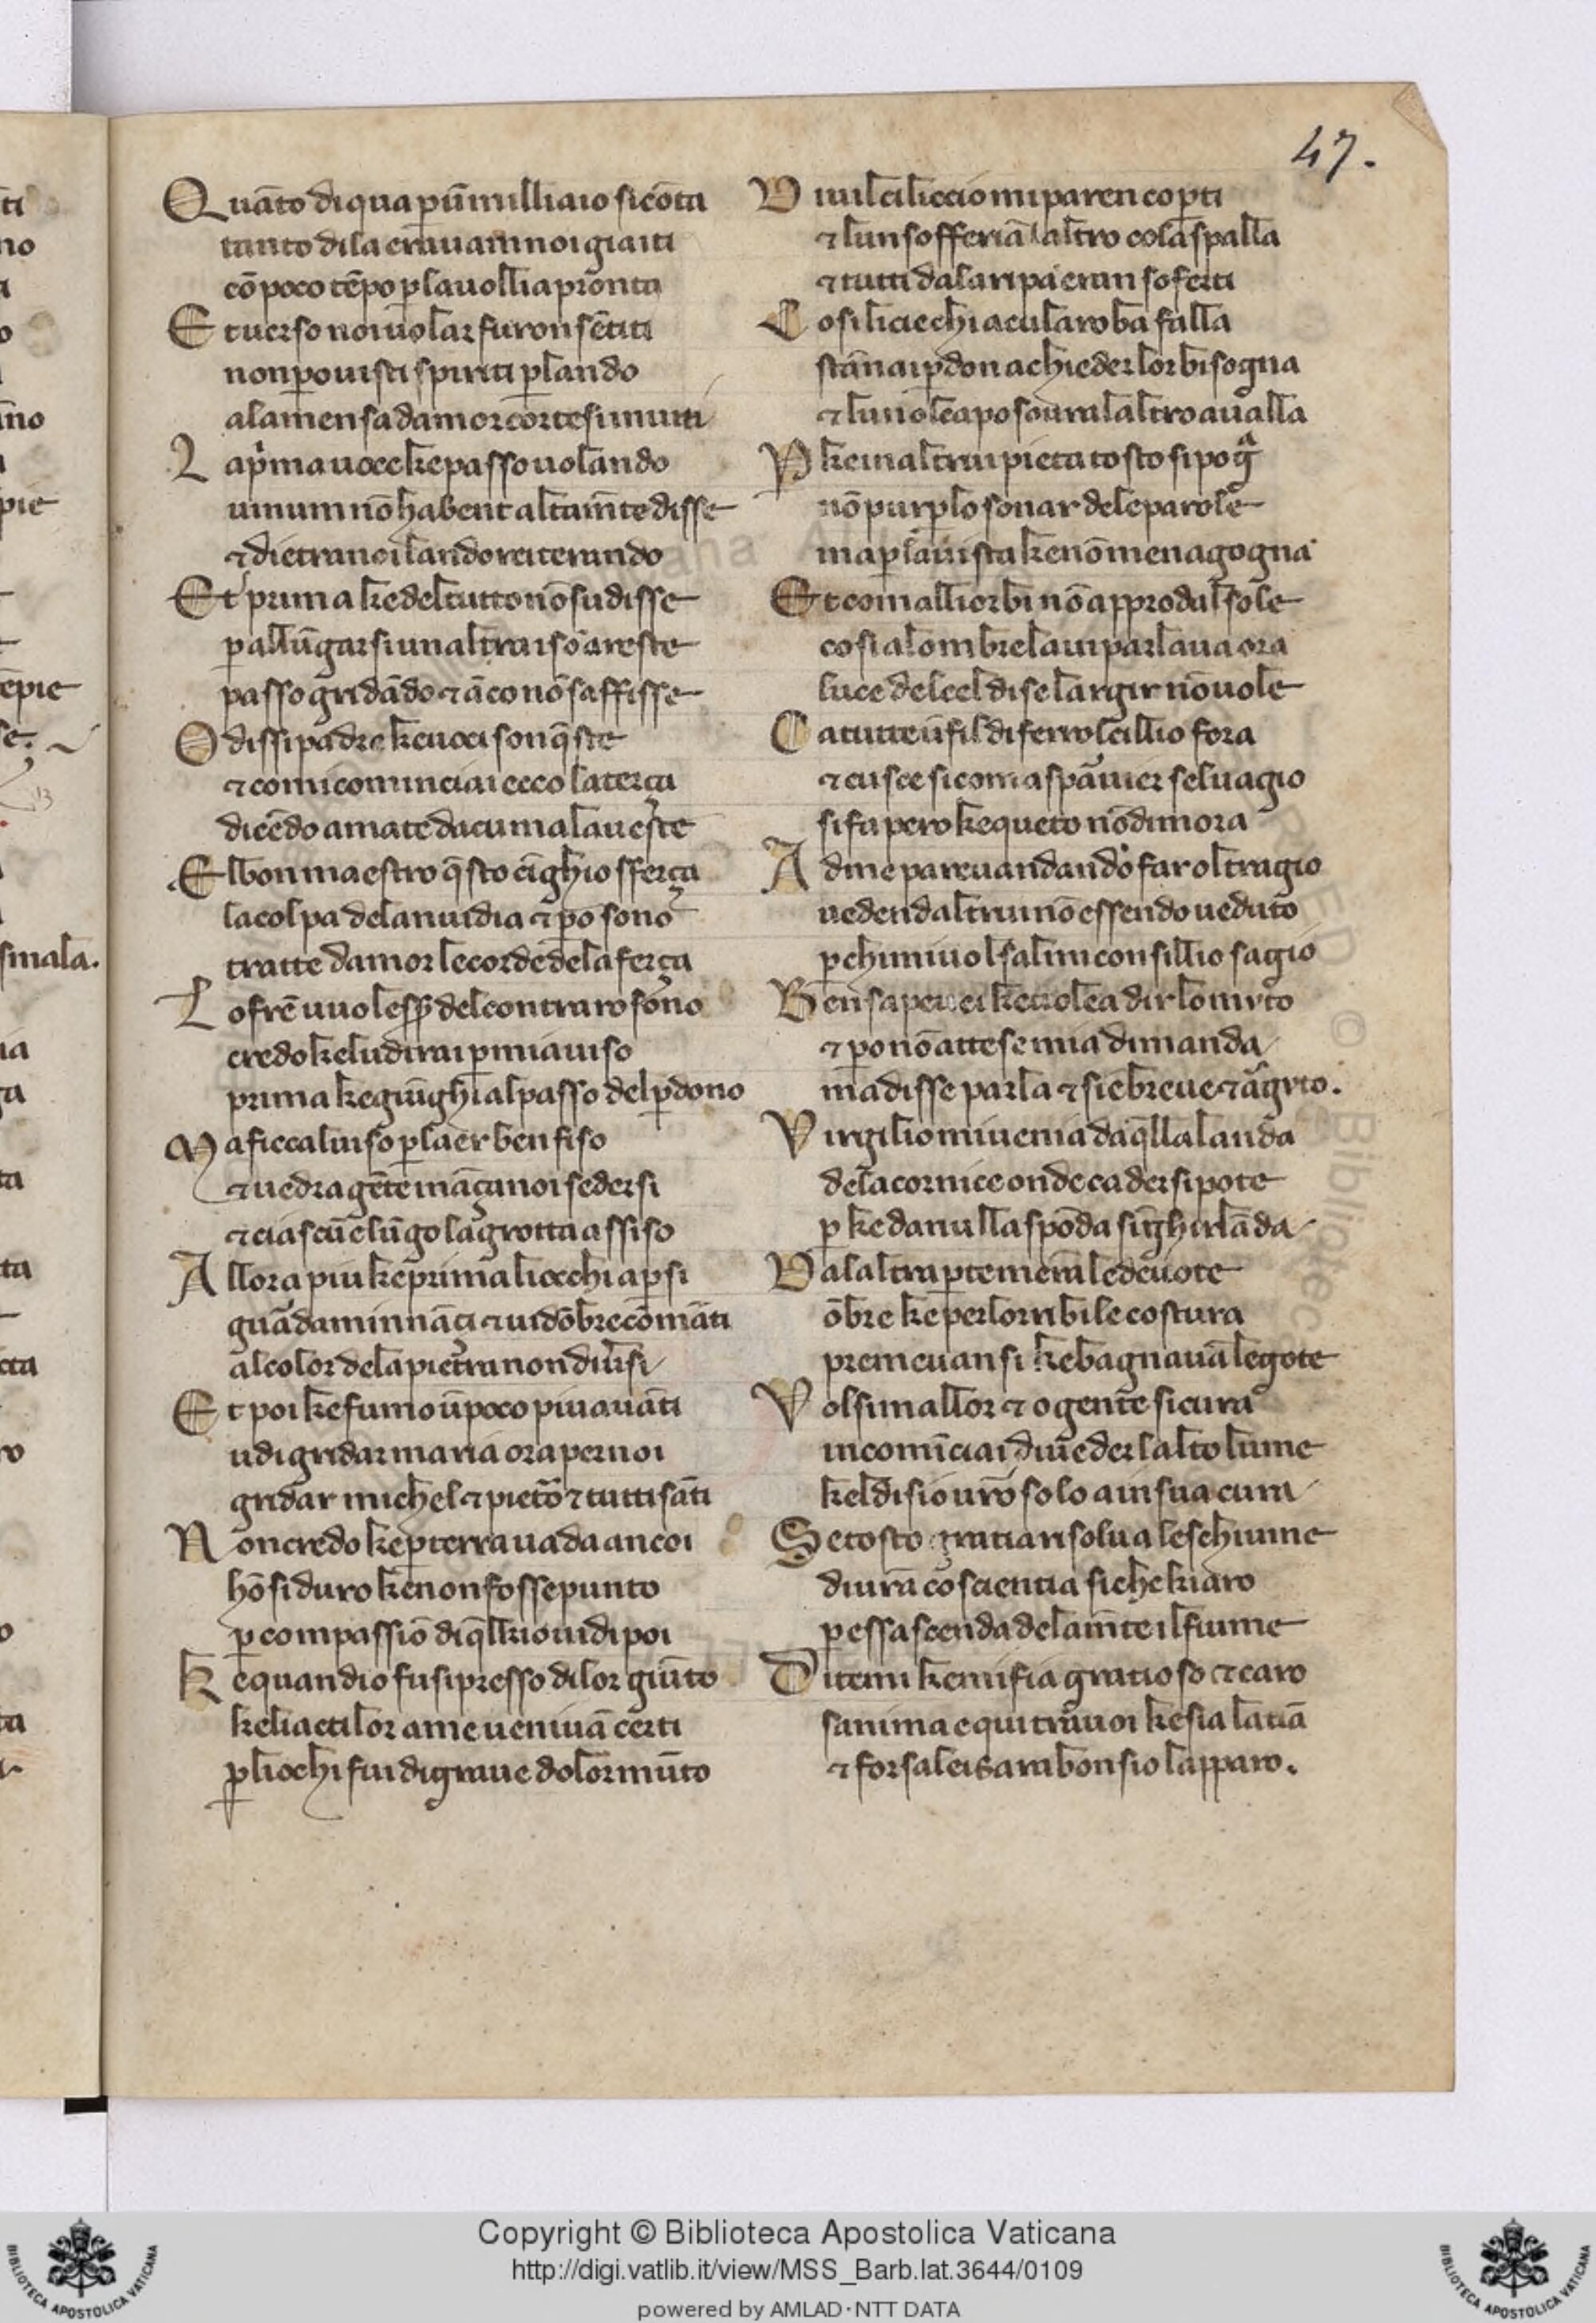 47.
Quāto di qua p ū milliaio si cōta
tanto di la eravam noi gia iti
cō poco tēpo p la vollia pronta
Et verso noi volar furon sētiti
non po visti spiriti plando
a la mensa damor cortesi inviti
La pͥma voce ke passo volando
vinum nō habent altam̄te disse
⁊ dietra noi lando reiterando
Et prima ke del tutto nō sudisse
p allūgarsi unaltra i so areste
passo gridādo ⁊ āco nō saffisse
O dissi padre ke voci son q̄ste
⁊ comi cominciai ecco la terça
dicēdo amate da cui male aveste
El bon maestro q̄sto cīghio sferça
la colpa de la nvidia ⁊ po sono
tratte damor le corde de la ferça
Lo frē vuol esser del contraro sono
credo ke ludirai p mi aviso
prima ke giūghi al passo del pdono
Ma ficca l viso p laer ben fiso
⁊ vedra gēte nāçi a noi sedersi
⁊ ciascū e lūgo la grotta assiso
Allora piu ke prima li occhi apsi
guādami nnāçi ⁊ vidōbre cō māti
al color de la pietra non diversi
Et poi ke fumo ū poco piu avāti
udi gridar maria ora per noi
gridar michel ⁊ pietro ⁊ tutti sāti
Non credo ke p terra vada ancoi
hō si duro ke non fosse punto
p compassiō di q̄l kio vidi poi
Ke quandio fu si presso di lor giūto
ke li acti lor a me venivā certi
p li ochi fui di grave dolor mūto
Di vil ciliccio mi paren copti
⁊ lun sofferia laltro co la spalla
⁊ tutti da la ripa eran soferti
Cosi li ciechi a cui la roba falla
stāno ai pdon a chieder lor bisogna
⁊ luno l capo sovra laltro avalla
P ke in altrui pieta tosto si pogͣ
nō pur p lo sonar de le parole
ma p la vista ke nō men agogna
Et com alli orbi nō approda l sole
cosi a lombre la vi parlava ora
luce del ciel di se largir nō vole
C a tutte ū fil di ferro l cillio fora
⁊ cusce si com a spavier selvagio
si fa pero ke queto nō dimora
Ad me pareva andando far oltragio
vedend altrui nō essendo veduto
p chi mi vols al mi consillio sagio
Ben sapev ei ke volea dir lo muto
⁊ po nō attese mia dimanda
ma disse parla ⁊ sie breve ⁊ aguto.
Virgilio mi venia da q̄lla landa
de la cornice onde cader si pote
p ke da nulla spōda si nghirlāda
Da laltra pte mem le devote
ōbre ke per lorribile costura
premevan si ke bagnavā le gote
Volsim a llor ⁊ o gente sicura
incomīciai di veder l alto lume
kel disio vr̄o solo a in sua cura
Se tosto gratia risolva le schiume
di vr̄a coscientia si che kiaro
p essa scenda de la mte il fiume
Ditemi ke mi fia gratioso ⁊ caro
s anima e qui tra voi ke sia latīa
⁊ forsa lei sara bon s io lapparo.
Copyright © Biblioteca Apostolica Vaticana
http://digi.vatlib.it/view/MSS_Barb.lat.3644/0109
powered by AMLAD·NTT DATA
BIBLIOTECA APOSTOLICA VATICANA
BIBLIOTECA APOSTOLICA VATICANA